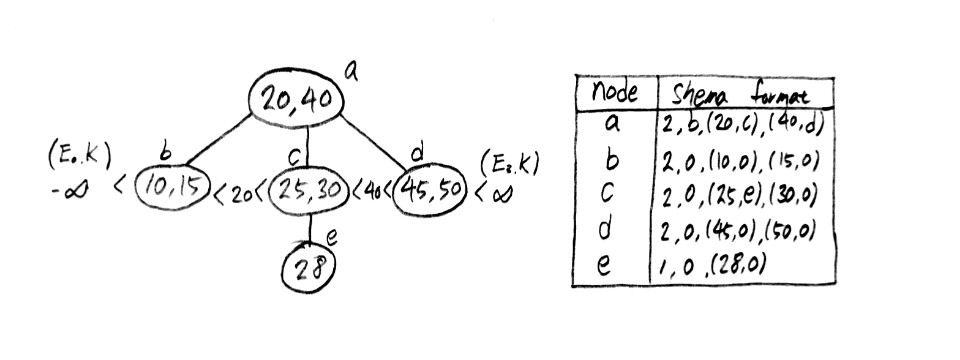 a
20,40
(E₀.K) b c d (E₂.K)
-∞ < 10,15 < 20 < 25,30 < 40 < 45,50 < ∞
e
28
node Shema format
a 2,b,(20,c),(40,d)
b 2,0,(10,0),(15,0)
c 2,0,(25,e),(30,0)
d 2,0,(45,0),(50,0)
e 1,0,(28,0)